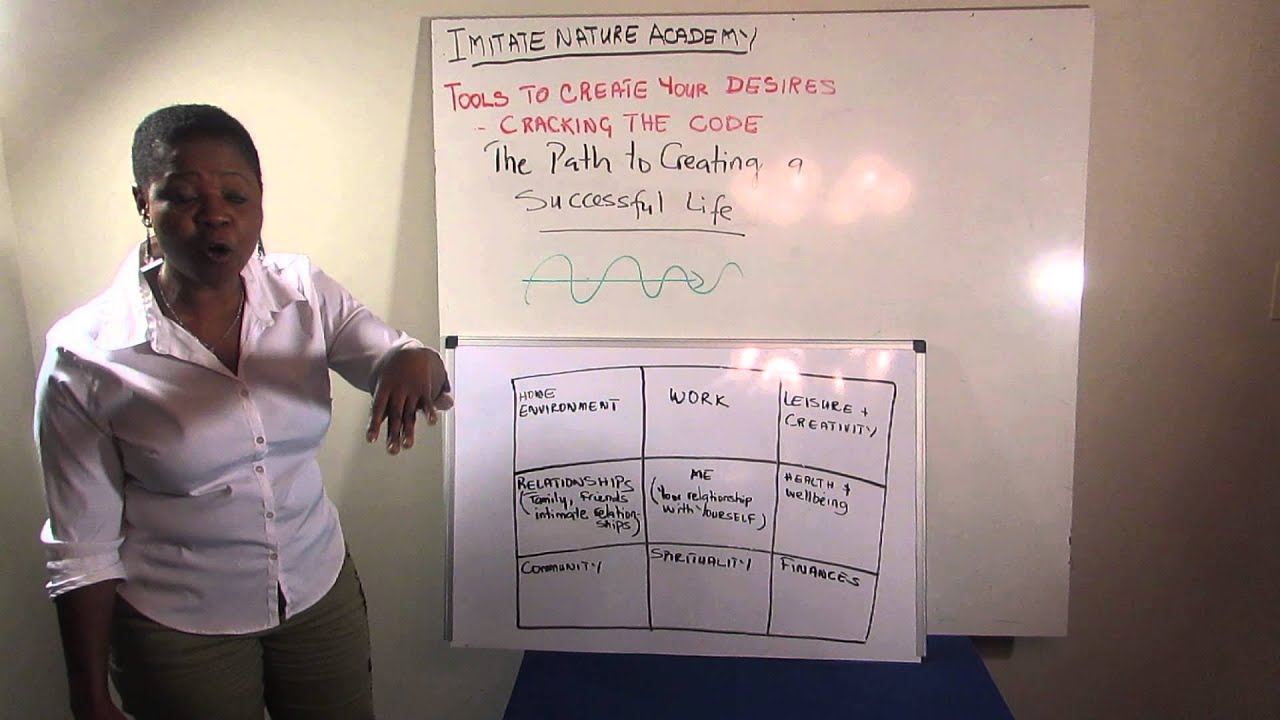 IMITATE NATURE ACADEMY
TOOLS TO CREATE YOUR DESIRES
- CRACKING THE CODE
The Path to Creating a
Successful Life
HOME
ENVIRONMENT
WORK
LEISURE +
CREATIVITY
RELATIONSHIPS
(Family, Friends
intimate relation-
ships)
ME
(Your relationship
with YOURSELF)
HEALTH +
wellbeing
COMMUNITY
SPIRITUALITY
FINANCES